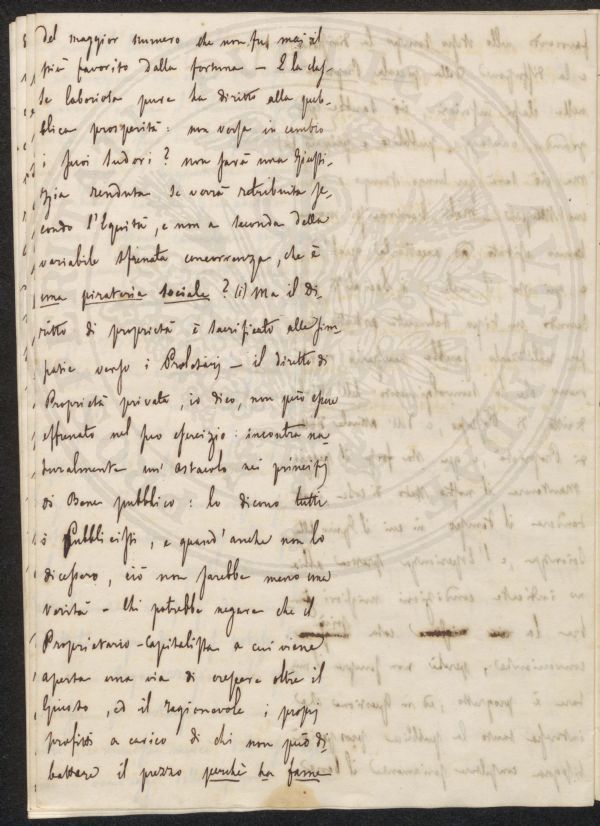 del maggior numero che non fu mai il
più favorito dalla fortuna – E la clas-
se laboriosa pure ha diritto alla pub-
blica prosperità: non versa in cambio
i suoi sudori? non sarà una Giusti-
zia renduta se verrà retribuita se-
condo l'Equità, e non a seconda della
variabile sfrenata concorrenza, che è
una pirateria sociale? (1) Ma il Di-
ritto di proprietà è sacrificato alle sim-
patie verso i Proletarj – il diretto di
Proprietà privata, io dico, non può essere
effrenato nel suo esercizio: incontra na-
turalmente un' ostacolo nei principj
di Bene pubblico: lo dicono tutti
i Pubblicisti, e quand' anche non lo
dicessero, ciò non sarebbe meno una
verità – Chi potrebbe negare che il
Proprietario-Capitalista a cui viene
aperta una via di crescere oltre il
Giusto, ed il ragionevole i proprj
profitti a carico di chi non può di-
battere il prezzo perchè ha fame